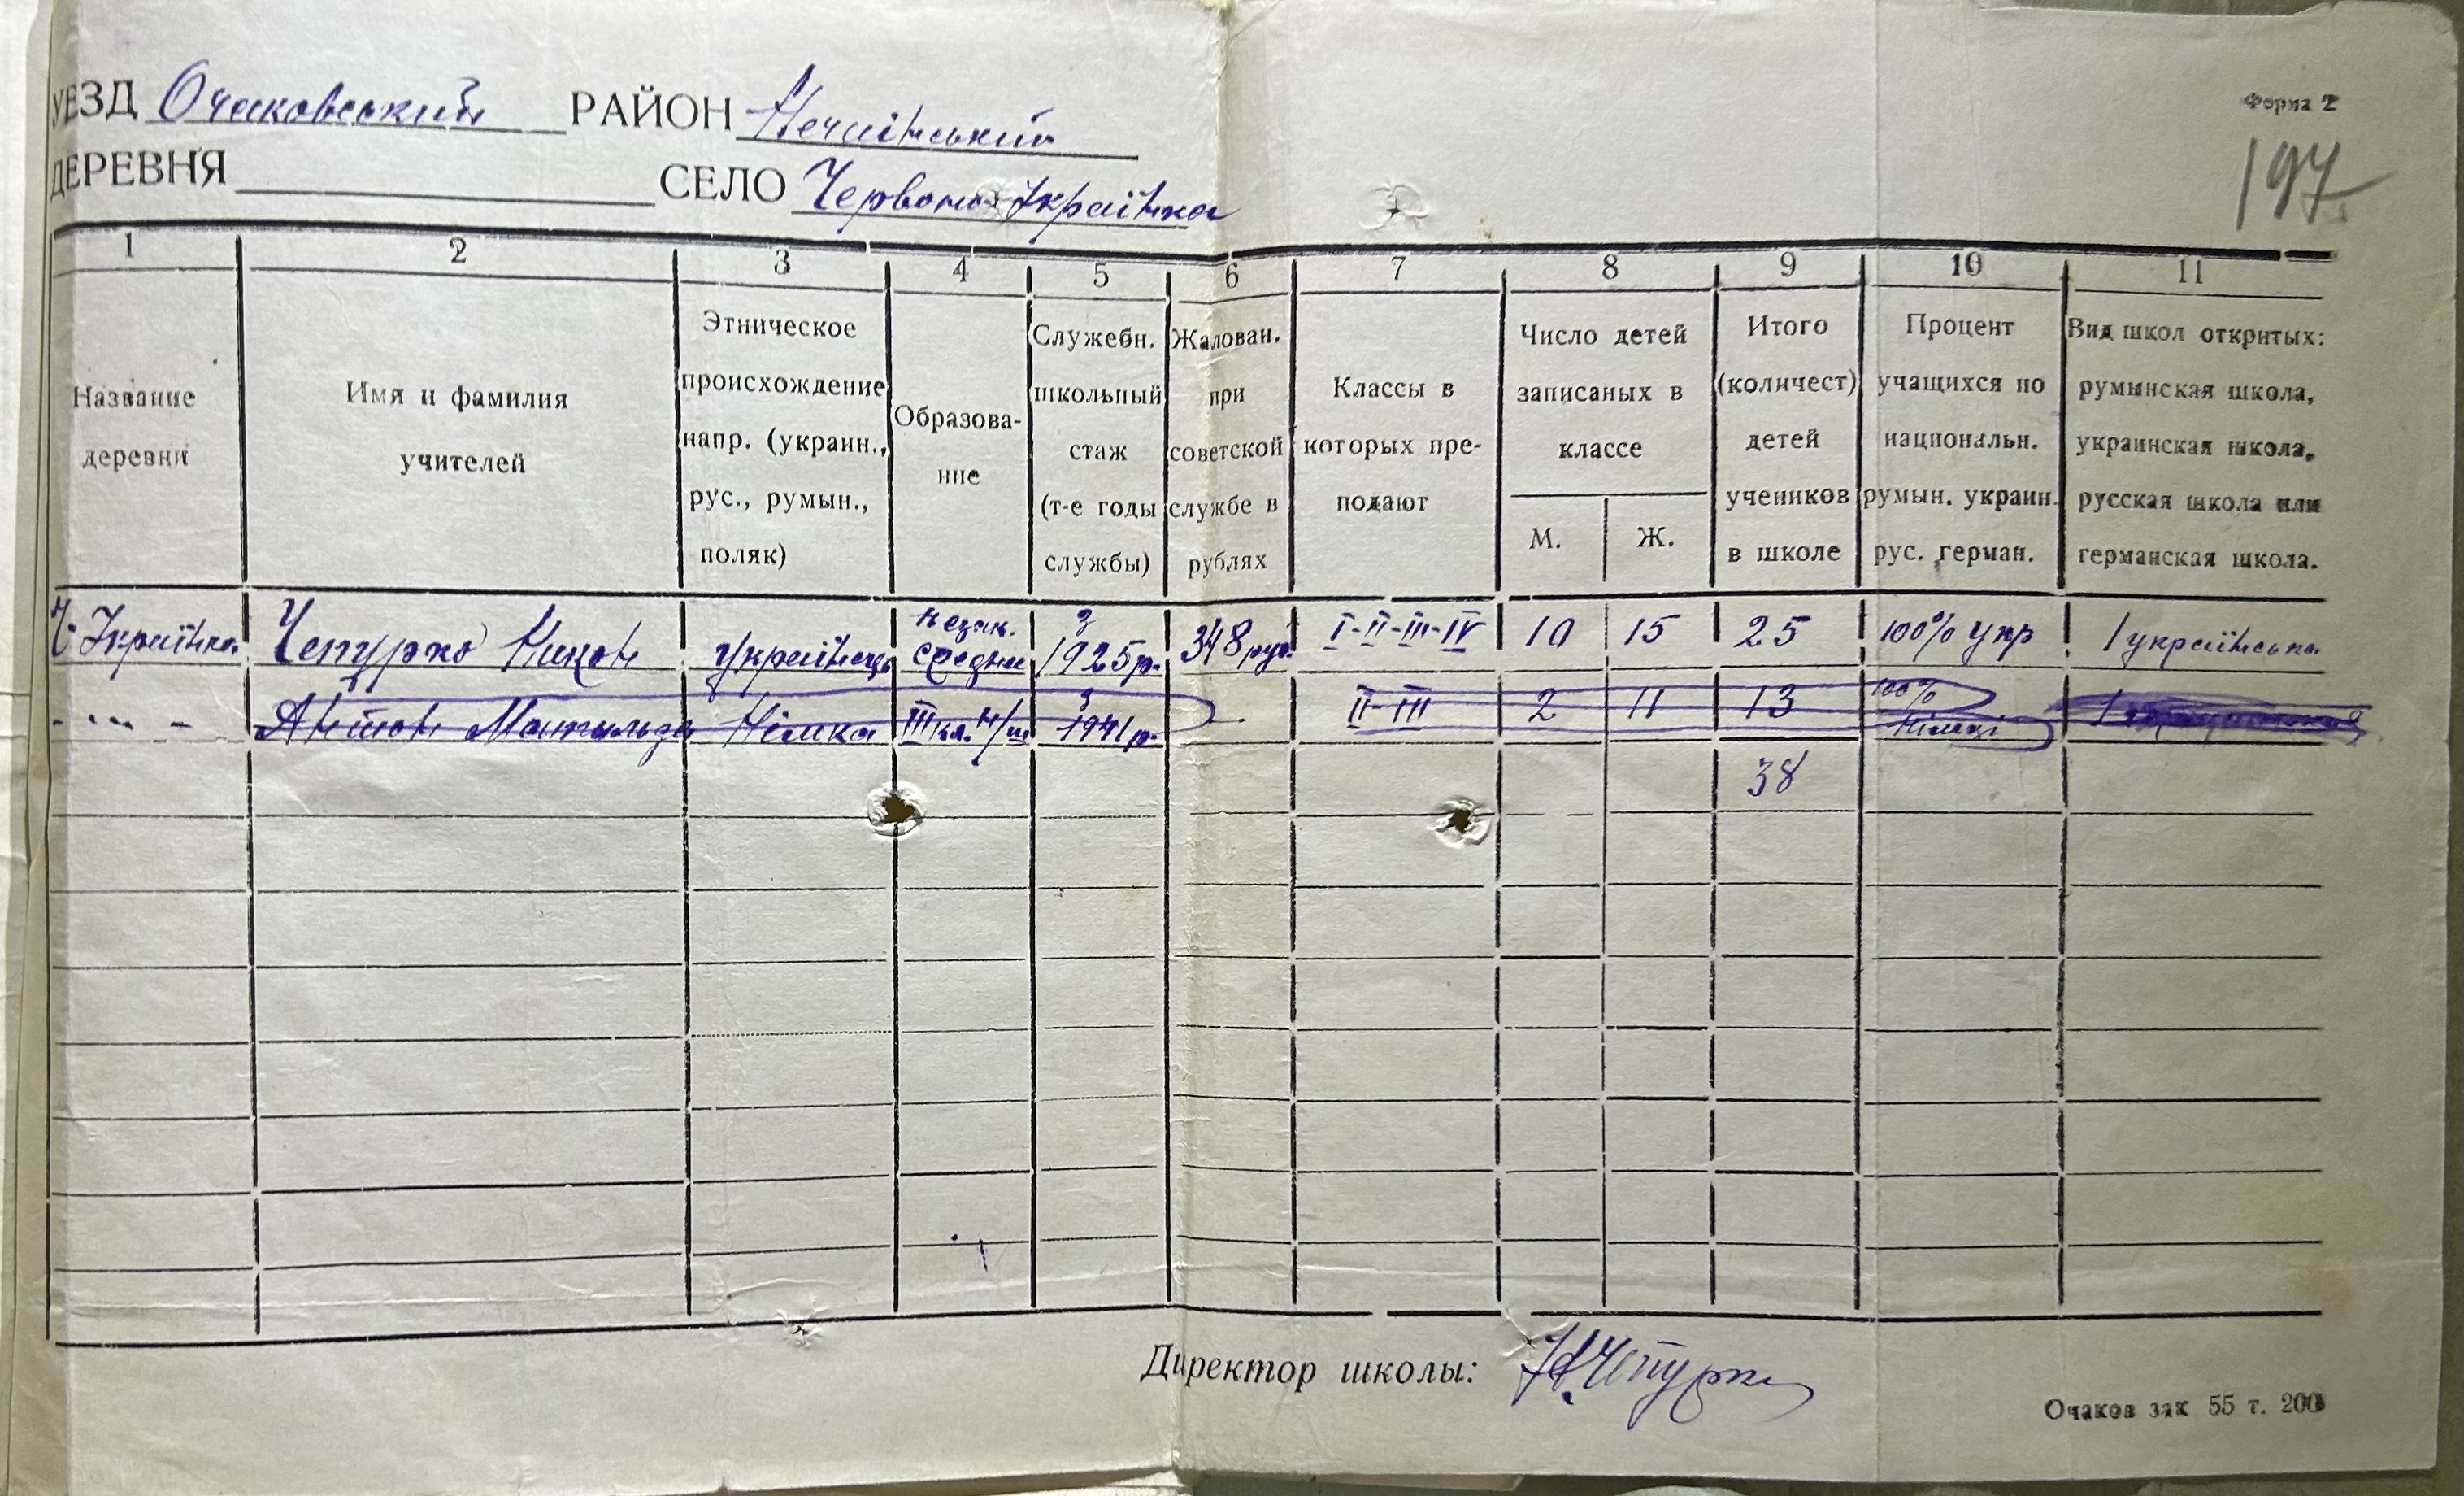 УЕЗД Очаковський РАЙОН Нечаїнський
Форма 2
197
ДЕРЕВНЯ СЕЛО Червона Українка
1 2 3 4 5 6 7 8 9 10 11
Название
деревни
Имя и фамилия
учителей
Этническое
происхождение
напр. (украин.,
рус., румын.,
поляк)
Образова-
ние
Служебн.
школьный
стаж
(т-е годы
службы)
Жалован.
при
советской
службе в
рублях
Классы в
которых пре-
подают
Число детей
записаных в
классе
М. Ж.
Итого
(количест)
детей
учеников
в школе
Процент
учащихся по
национальн.
румын. украин.
рус. герман.
Вид школ откритых:
румынская школа,
украинская школа,
русская школа или
германская школа.
Ч. Українка. Чепурко Никон українець незак. средне з 1925 р. 348 руб. I-II-III-IV 10 15 25 100% укр 1 українська
- "" - Антон Матильда Німка III кл. н/ш з 1941 р. II-III 2 11 13 100% німці 1
38
Директор школы: Н. Чепурко
Очаков зак 55 т. 200